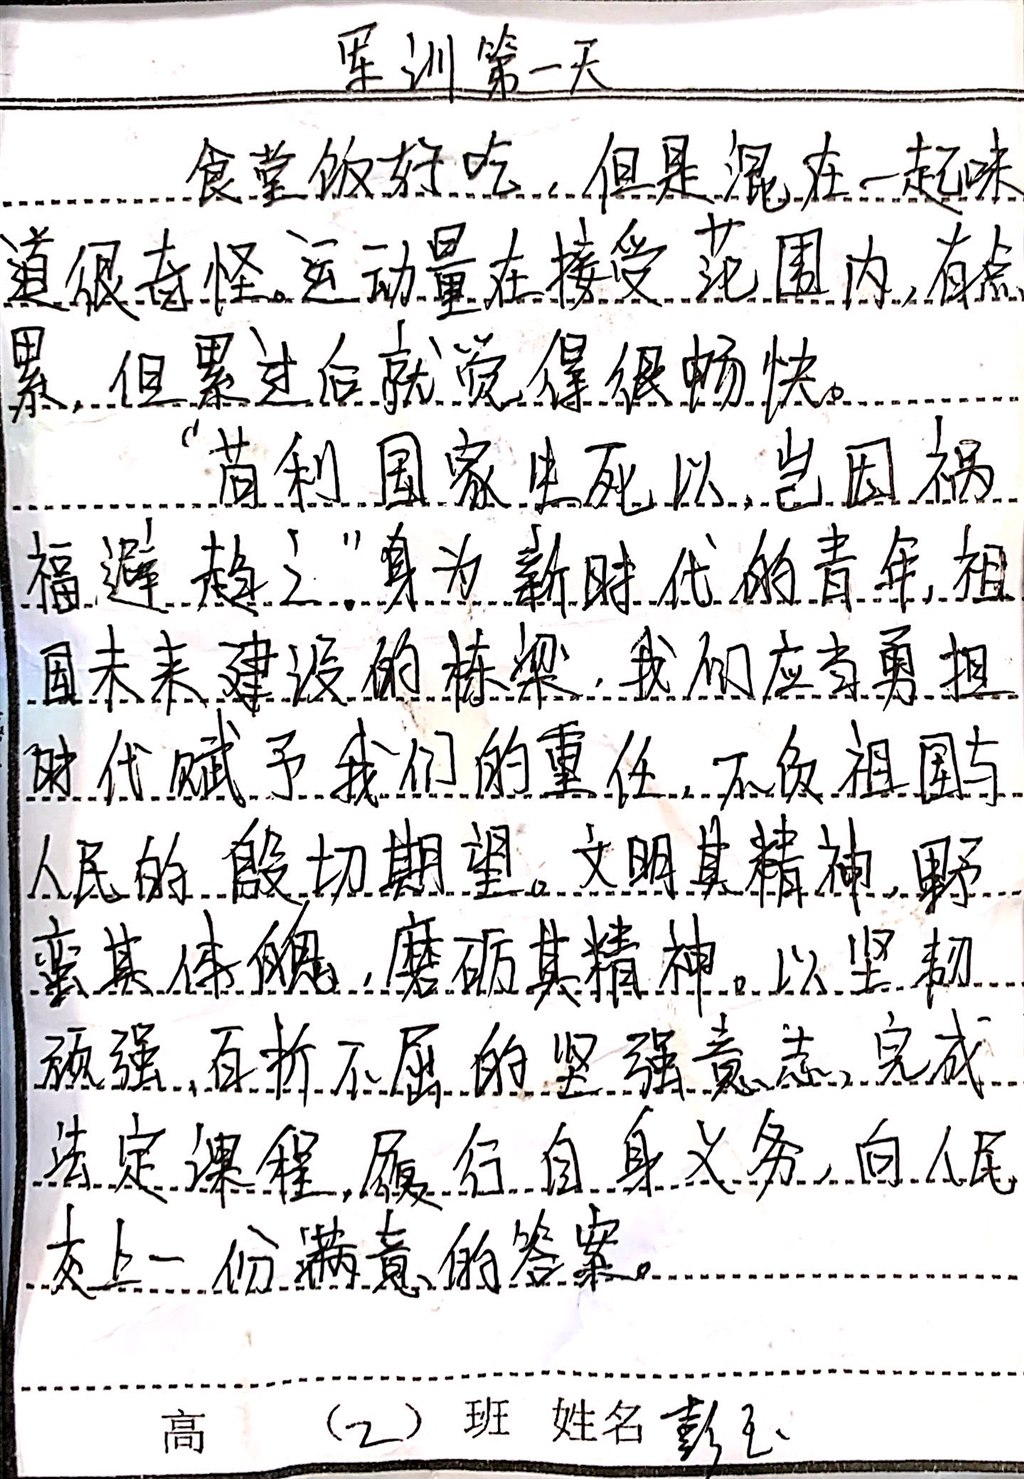 军训第一天
食堂饭好吃，但是混在一起味
道很奇怪。运动量在接受范围内，有点
累，但累过后就觉得很畅快。
“苟利国家生死以，岂因祸
福避趋之”。身为新时代的青年，祖
国未来建设的栋梁，我们应当勇担
时代赋予我们的重任，不负祖国与
人民的殷切期望。文明其精神，野
蛮其体魄，磨砺其精神。以坚韧
顽强，百折不屈的坚强意志，完成
法定课程，履行自身义务，向人民
交上一份满意的答案。
高 （2）班 姓名 彭